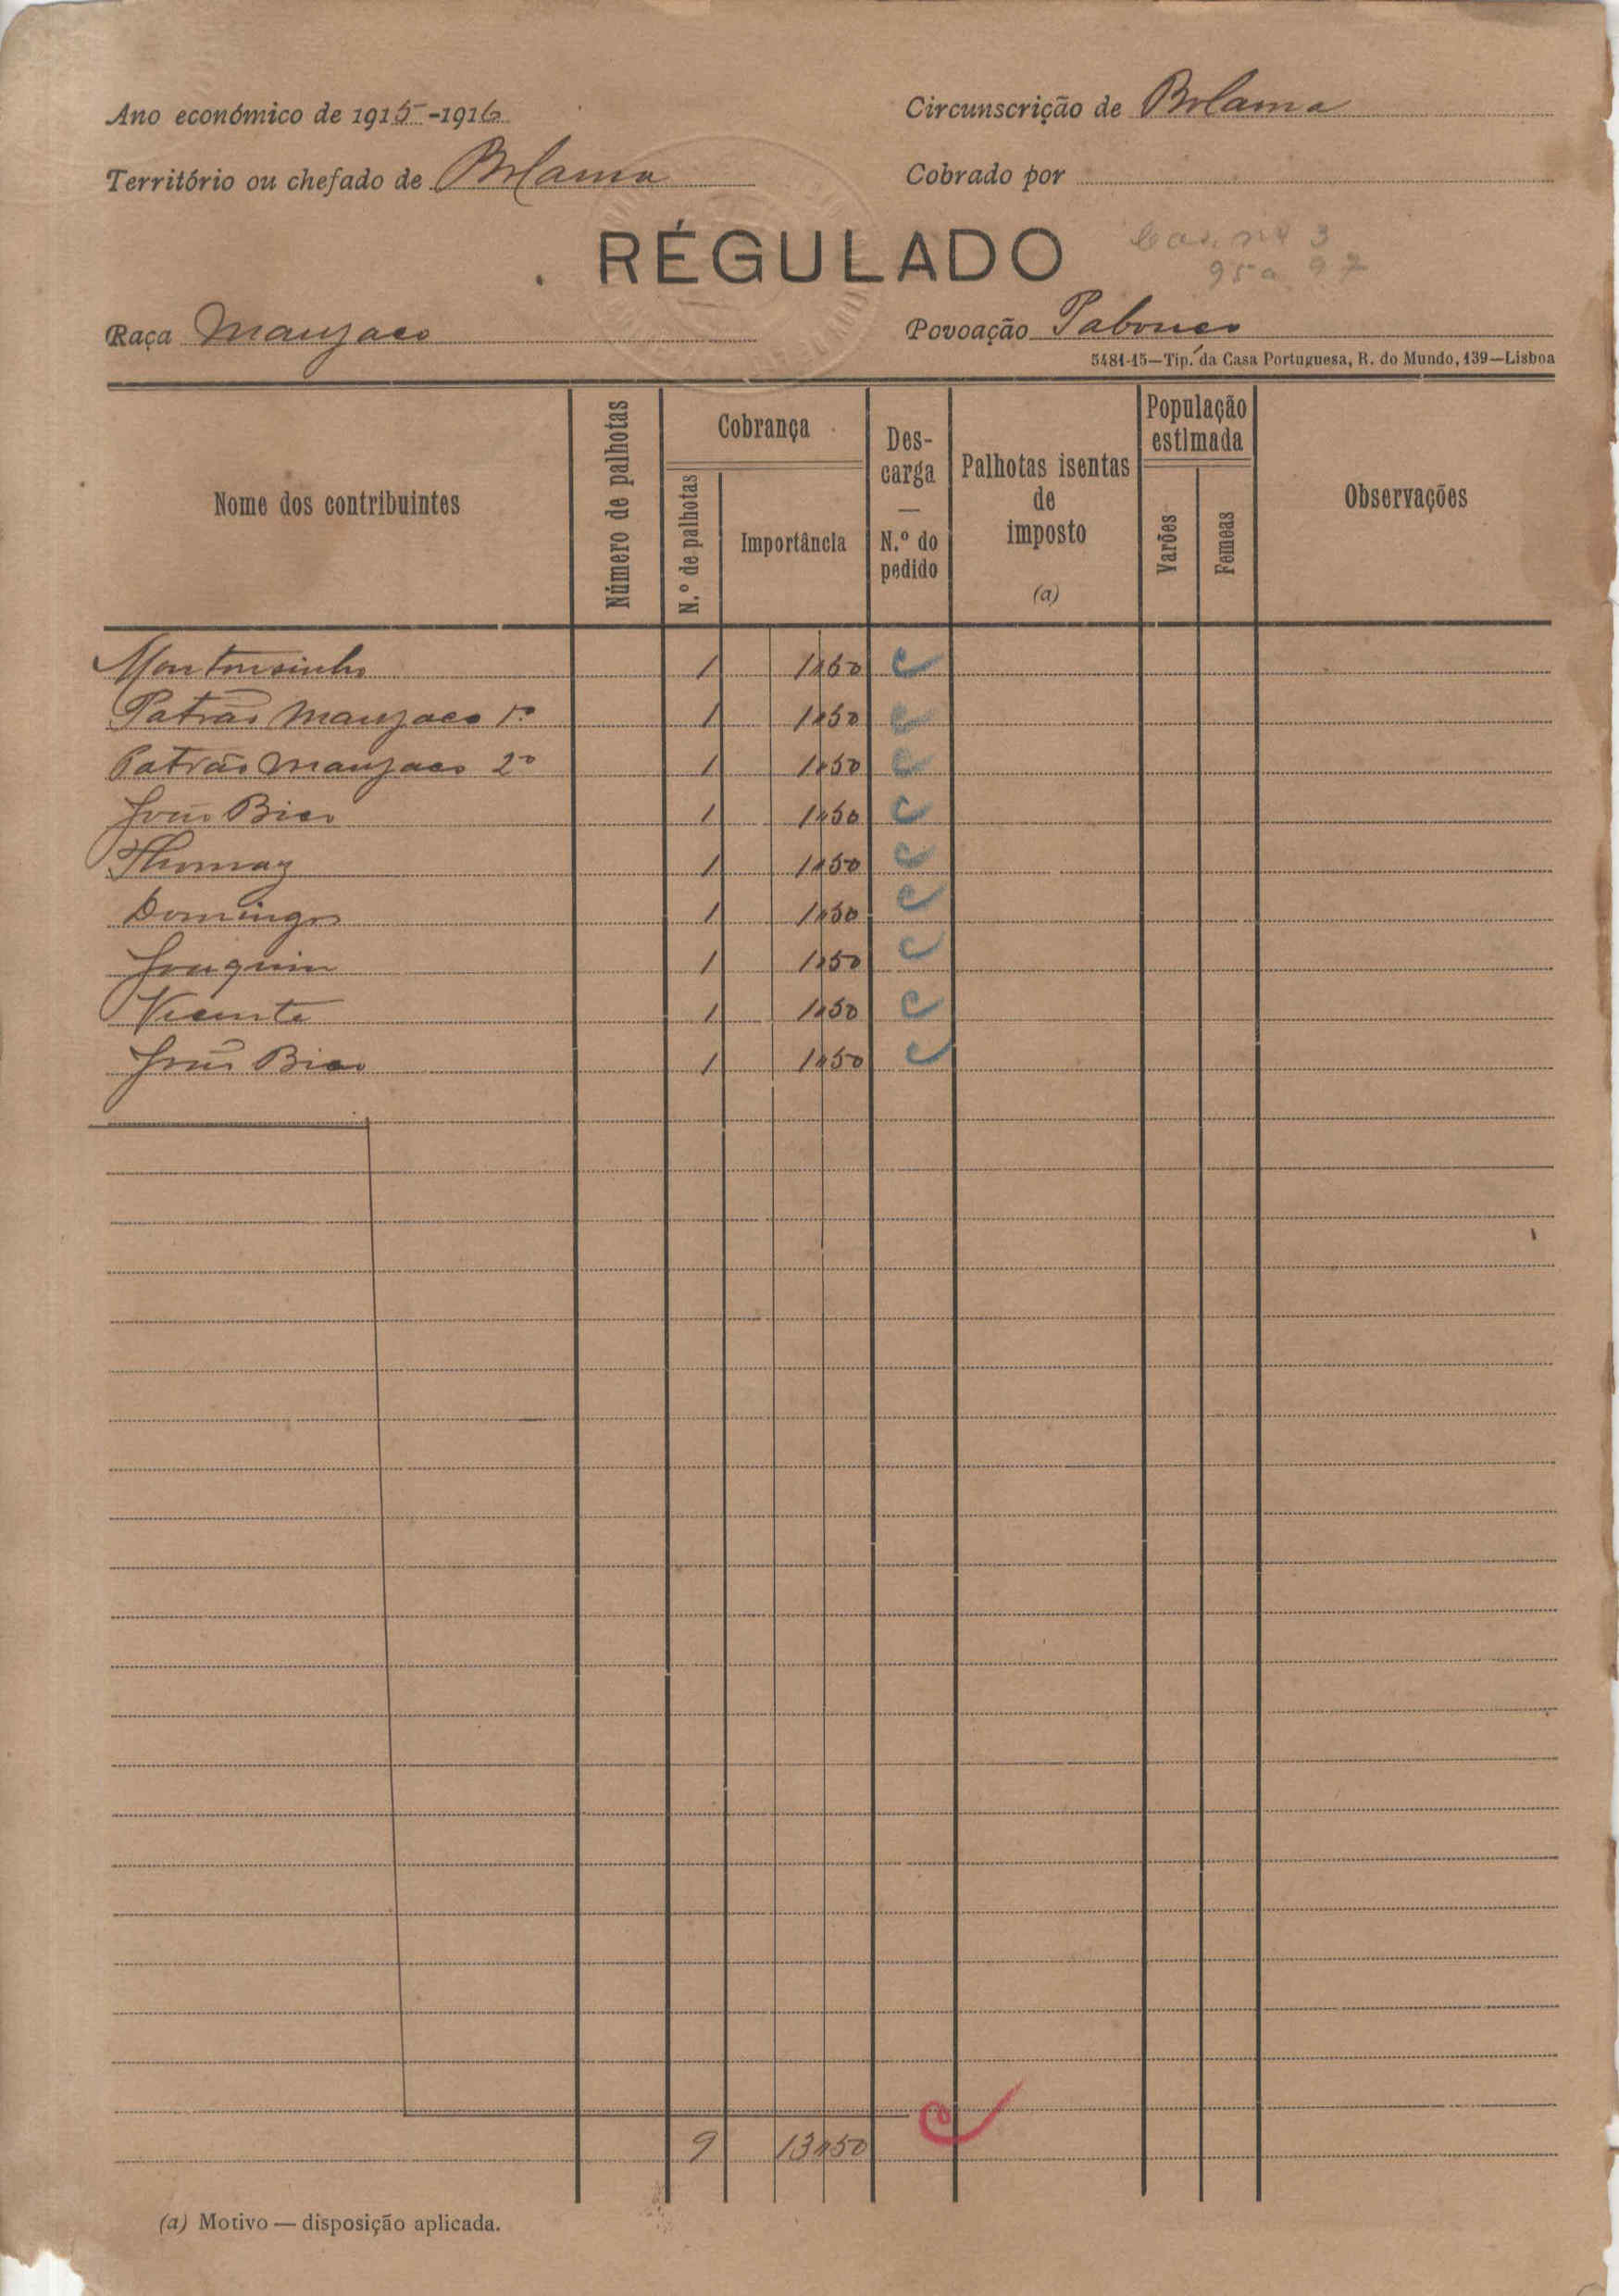 Ano económico de 1915-1916
Circunscrição de Bolama
Território ou chefado de Bolama
Cobrado por
RÉGULADO
3
95 a 97
Raça Manjaco
Povoação
5481-15—Tip. da Casa Portuguesa, R. do Mundo, 139—Lisboa
Nome dos contribuintes
Número de palhotas
Cobrança
N.º de palhotas
Importância
Des-
carga
—
N.º do
pedido
Palhotas isentas
de
imposto
(a)
População
estimada
Varões
Femeas
Observações
1 1$50 C
Patrão Manjaco 1º 1 1$50 C
Patrão Manjaco 2º 1 1$50 C
João Bico 1 1$50 C
Thomaz 1 1$50 C
Domingos 1 1$50 C
Joaquim 1 1$50 C
Vicente 1 1$50 C
João Bico 1 1$50 C
C
9 13$50
(a) Motivo — disposição aplicada.